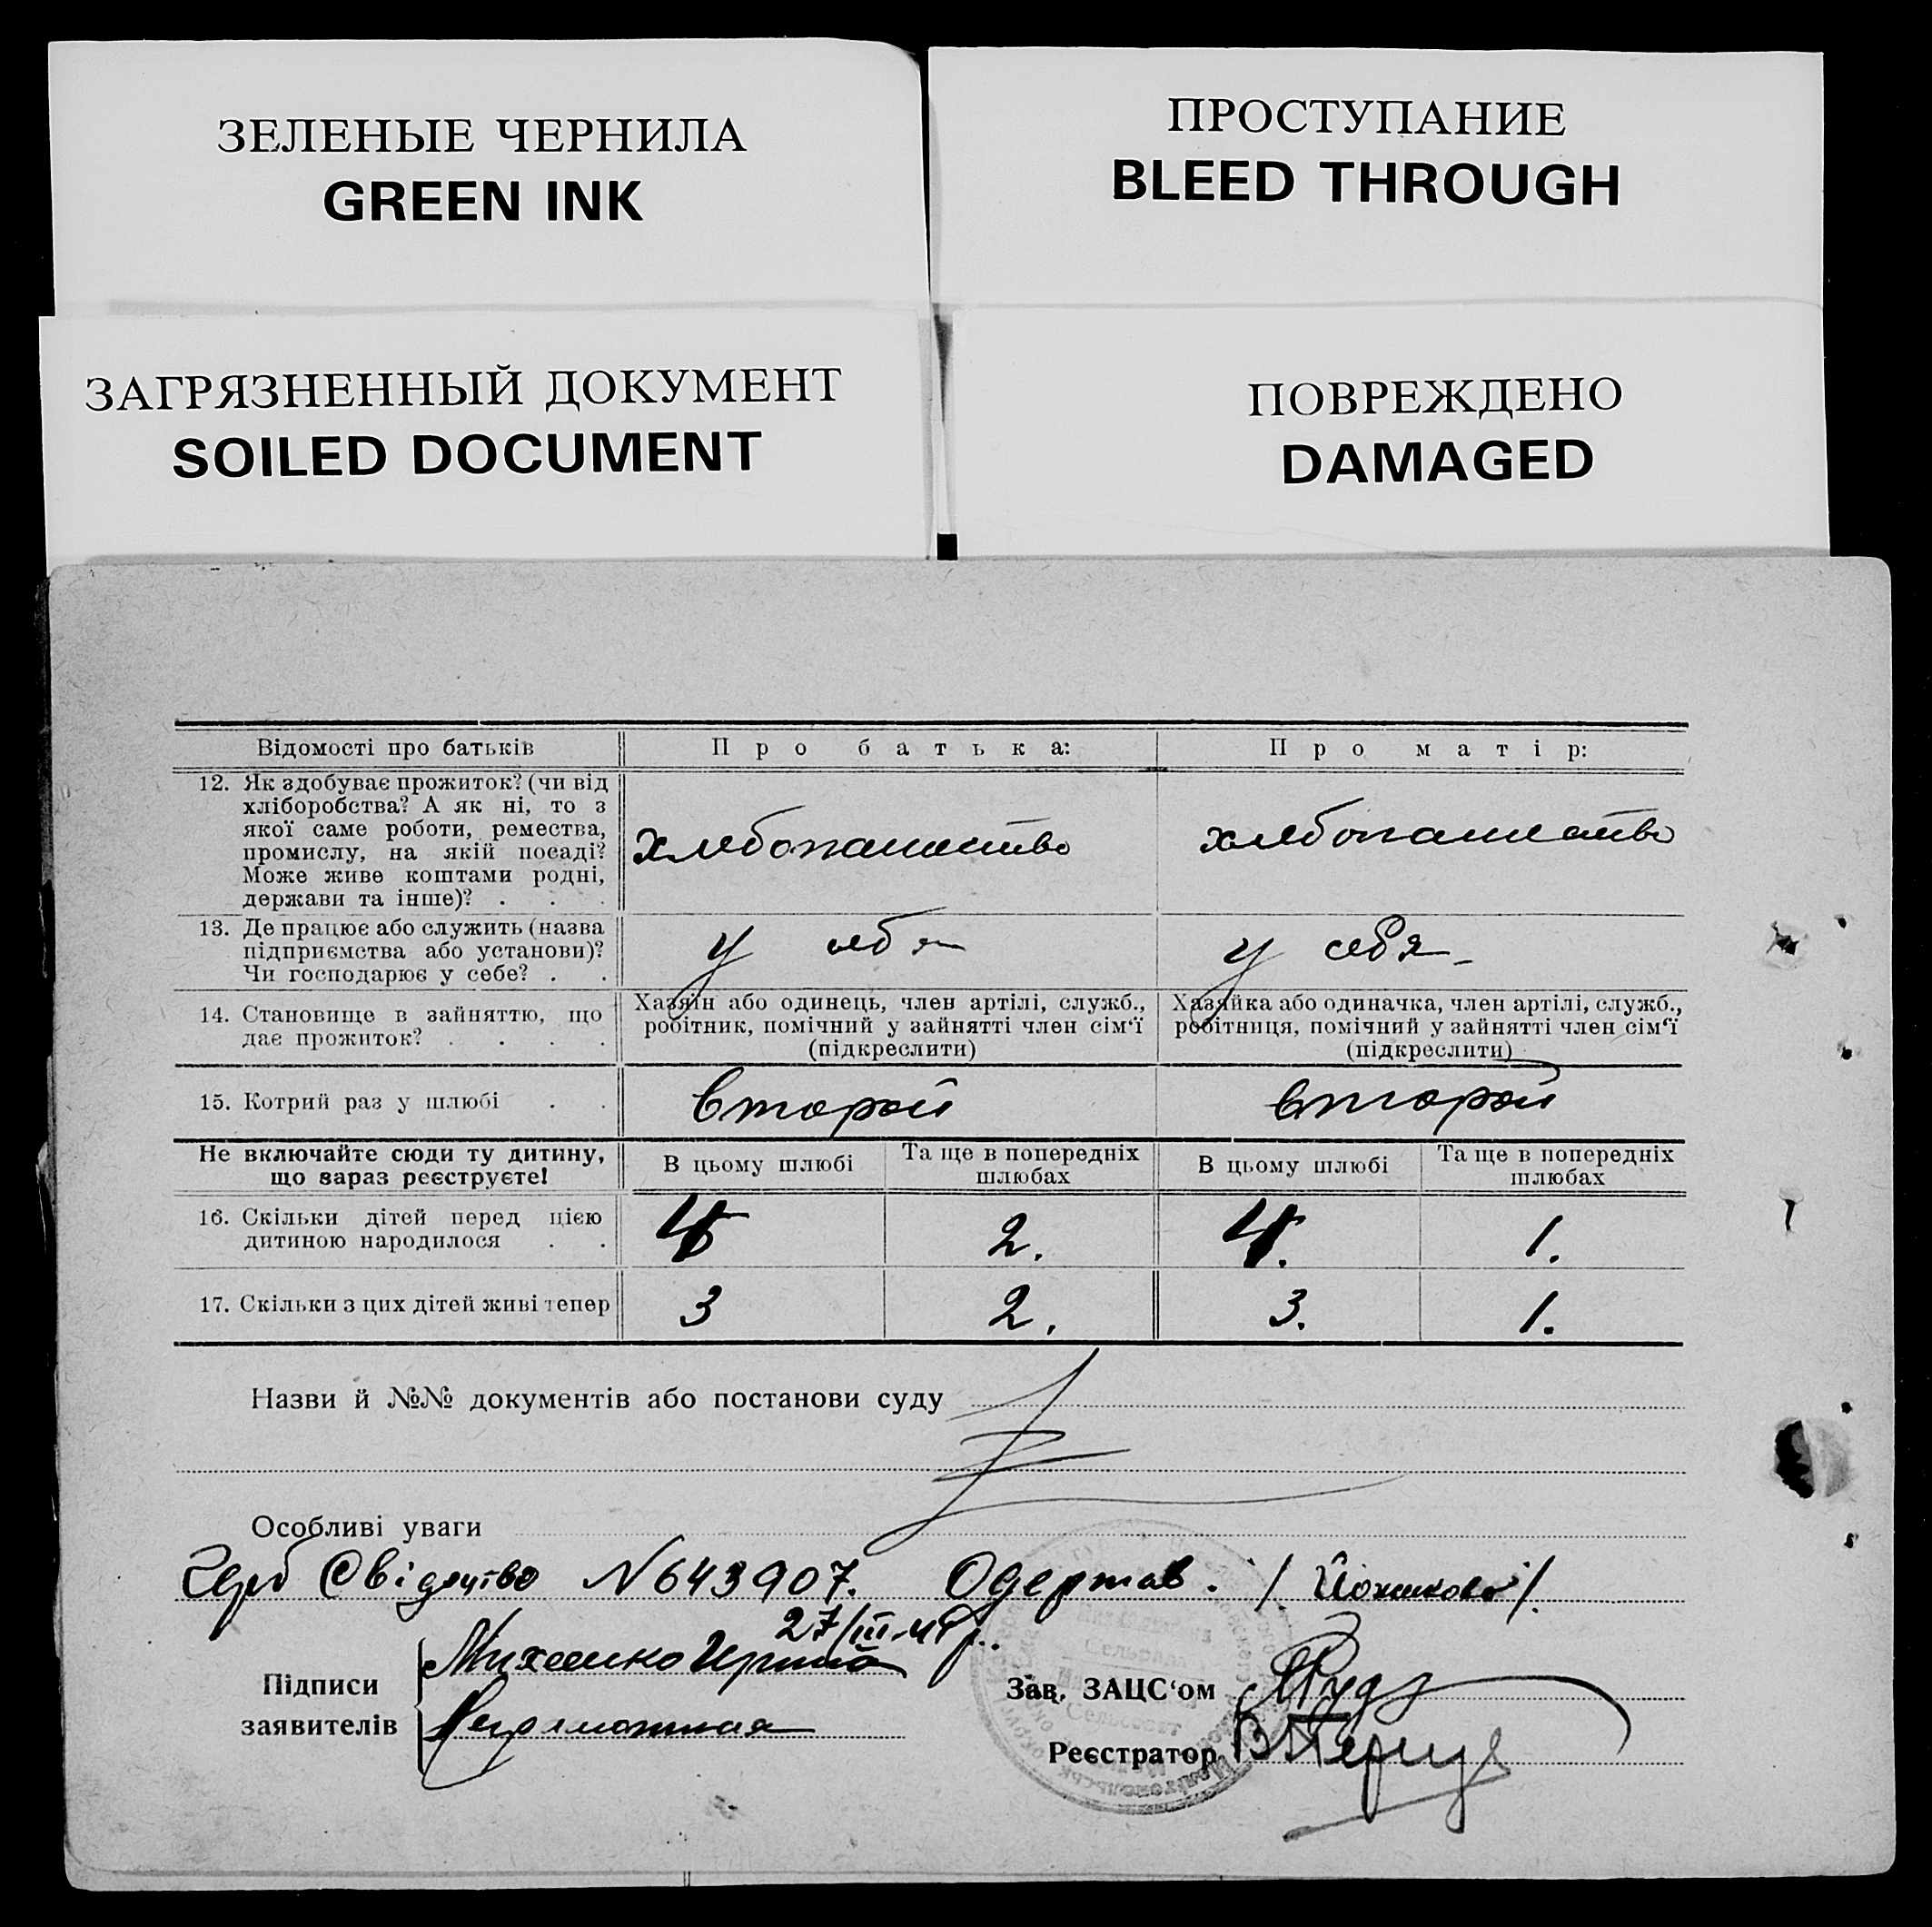 ЗЕЛЕНЫЕ ЧЕРНИЛА
GREEN INK
ПРОСТУПАНИЕ
BLEED THROUGH
ЗАГРЯЗНЕННЫЙ ДОКУМЕНТ
SOILED DOCUMENT
ПОВРЕЖДЕНО
DAMAGED
Відомості про батьків
Про батька:
Про матір:
12. Як здобуває прожиток? (чи від
хліборобства? А як ні, то з
якої саме роботи, ремества,
промислу, на якій посаді?
Може живе коштами родні,
держави та інше)? . . .
хлебопашество
хлебопашество
13. Де працює або служить (назва
підприємства або установи)?
Чи господарює у себе? . .
у себя
у себя
14. Становище в зайняттю, що
дає прожиток? . . . .
Хазяїн або одинець, член артілі, служб.,
робітник, помічний у зайнятті член сім‘ї
(підкреслити)
Хазяйка або одиначка, член артілі, служб.,
робітниця, помічний у зайнятті член сім‘ї
(підкреслити)
15. Котрий раз у шлюбі . .
второй
второй
Не включайте сюди ту дитину,
що зараз реєструєте!
В цьому шлюбі
Та ще в попередніх
шлюбах
В цьому шлюбі
Та ще в попередніх
шлюбах
16. Скільки дітей перед цією
дитиною народилося . .
2.
4.
1.
17. Скільки з цих дітей живі тепер
3
2.
3.
1.
Назви й №№ документів або постанови суду
Особливі уваги
Герб Свідоцтво N 643907. Одержав.
27/III
Підписи
заявителів
Зав. ЗАЦС‘ом
Реєстратор